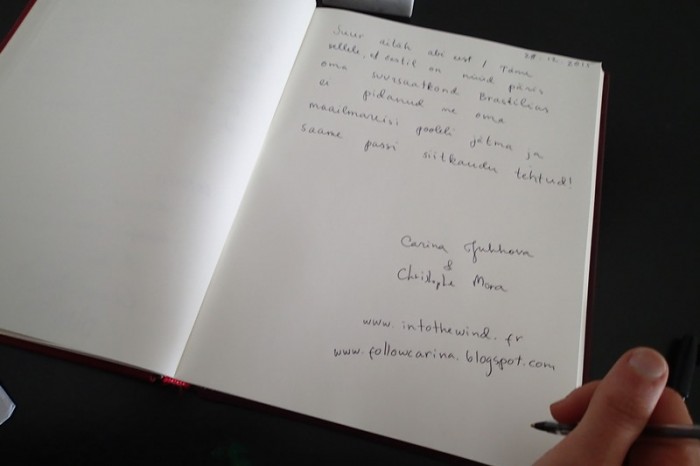 28.12.2011
Suur aitäh abi eest! Täna
sellele, et Eestil on nüüd päris
oma suursaatkond Brasiilias
ei pidanud me oma
maailmareisi pooleli jätma ja
saame passi siitkaudu tehtud!
Carina
&
Christophe Mora
www.intothewind.fr
www.followcarina.blogspot.com